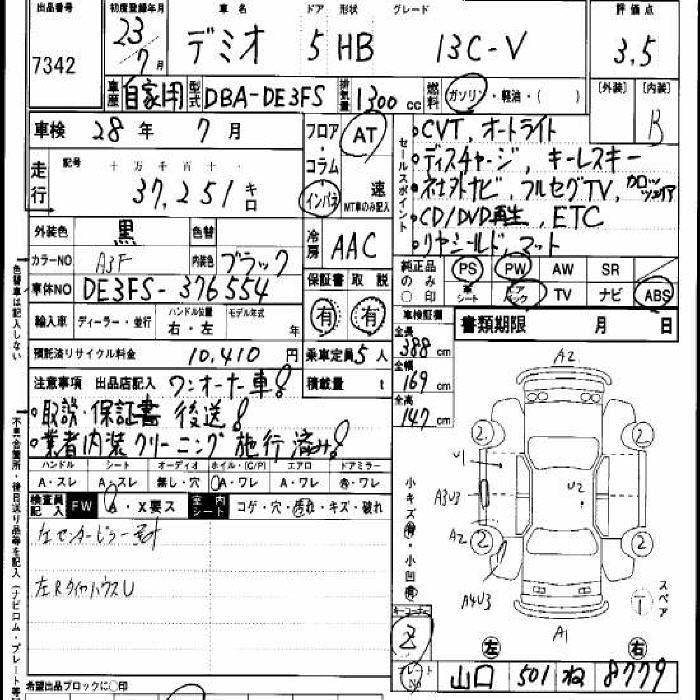 出品番号 初度登録年月 車名 ドア 形状 グレード 評価点
7342 23 7月 デミオ 5 HB 13C-V 3.5
車歴 自家用 型式 DBA-DE3FS 排気量 1300cc 燃料 ガソリン・軽油・( ) [外装] [内装]
B
車検 28年 7月 フロア・コラム・インパネ AT 速 MT車のみ記入
セールスポイント
・CVT, オートライト
・ディスチャージ, キーレスキー
・社外ナビ, フルセグTV,
・CD/DVD再生, ETC
・リヤシールド, マット
走行 記号 十万千百十一
37,251キロ
外装色 黒 色替 冷房 AAC
カラーNO A3F 内装色 ブラック
車体NO DE3FS-376554 保証書 取説
有 有
純正品のみ〇印 PS PW AW SR
エアバック TV ナビ ABS
輸入車 ディーラー・並行 ハンドル位置 右・左 モデル年式 年
車検証欄 書類期限 月 日
預託済リサイクル料金 10,410円 乗車定員5人
積載量 t
全長 388cm
全幅 169cm
全高 147cm
注意事項 出品店記入 ワンオーナー車!
・取説・保証書 後送!
・業者内装クリーニング施行済み!
ハンドル シート オーディオ ホイル・(C/P) エアロ ドアミラー
A・スレ A・スレ 無し・穴 A・ワレ A・ワレ
検査員記入 FW A・X要ス 室内シート コゲ・穴・汚れ・キズ・破れ
左センターピラー
左RタイヤハウスU
A2
2 2
U1
A3U3 U2
A2
2 2
A4U3
A1
スペア
1
小キズ有・小凹有
左 右
2
プレートNo 山口 501 ね 8779
色替車は記入しない
希望出品ブロックに〇印